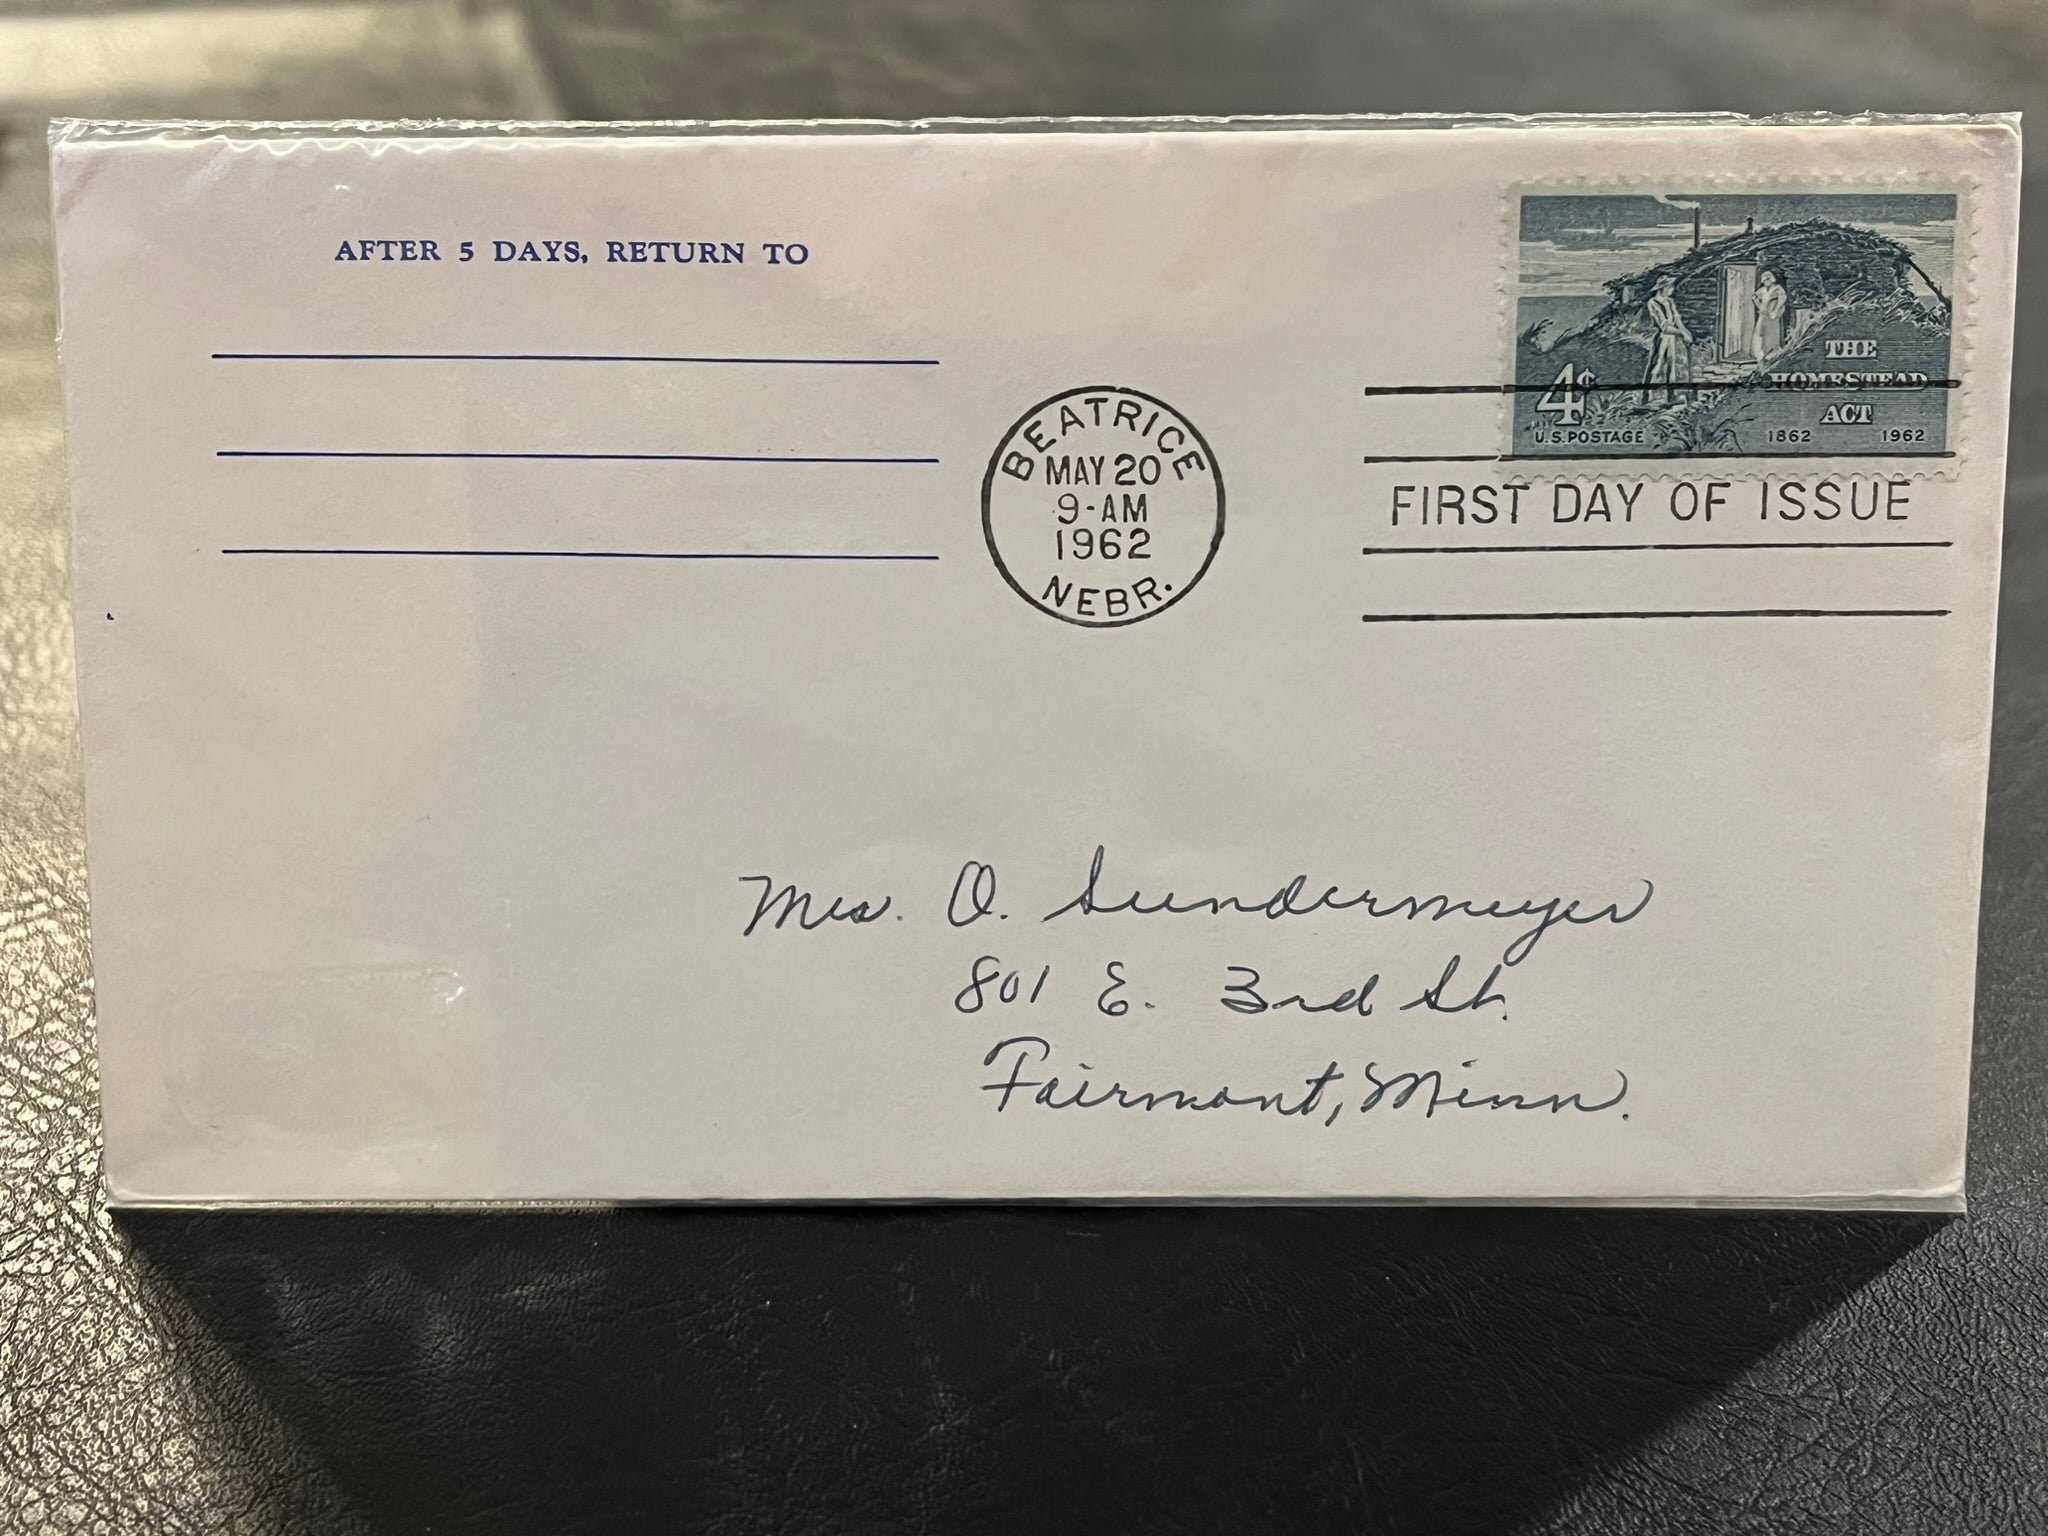 AFTER 5 DAYS, RETURN TO
THE
HOMESTEAD
ACT
4¢
U.S. POSTAGE 1862 1962
BEATRICE
MAY 20
9-AM
1962
NEBR.
FIRST DAY OF ISSUE
Mrs. O. Sundermeyer
801 E. 3rd St.
Fairmont, Minn.